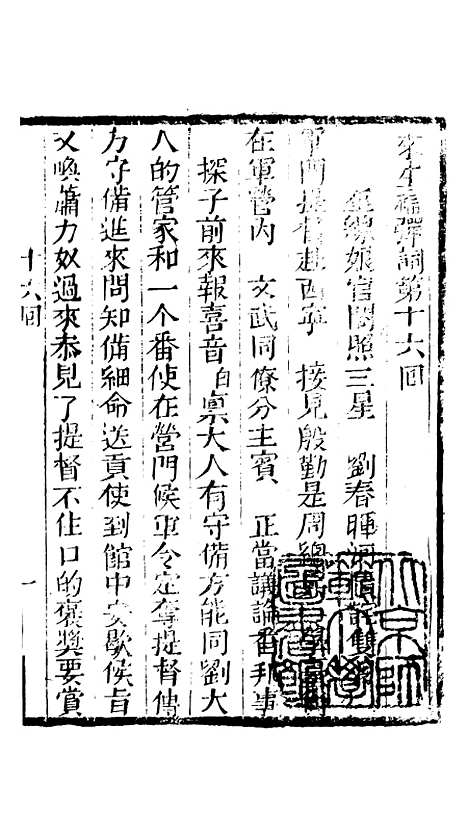 來生福彈詞第十六回
娘官閣照三星 劉春暉
軍門提督赴西寧 接見殷勤是周總
在軍營內 文武同僚分主賓 正當議論番邦事
探子前來報喜音白稟大人有守備方能同劉大
人的管家和一个番使在營門候軍令定奪提督傳
方守備進來問知備細命送貢使到館中安歇候旨
又喚蕭力奴過來恭見了提督不住口的褒奬要賞
十六回
一